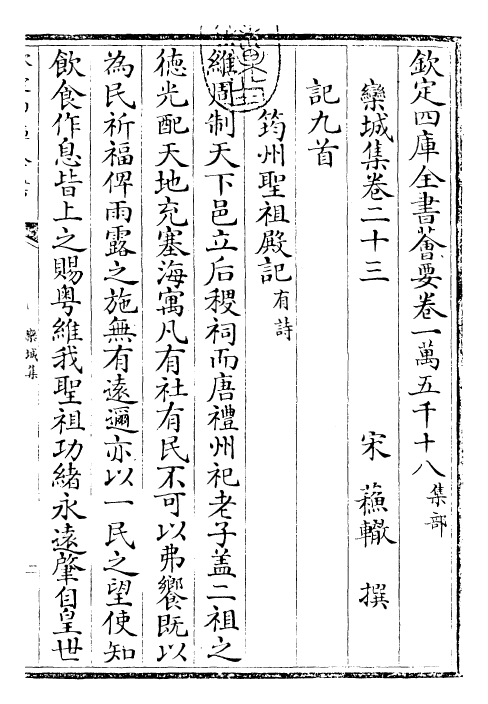 欽定四庫全書薈要卷一萬五千十八 集部
欒城集卷二十三 宋 蘓轍 撰
記九首
筠州聖祖殿記 有詩
維周制天下邑立后稷祠而唐禮州祀老子盖二祖之
徳光配天地充塞海寓凡有社有民不可以弗饗既以
為民祈福俾雨露之施無有遠邇亦以一民之望使知
飲食作息皆上之賜粤維我聖祖功緒永遠肇自皇世
欒城集